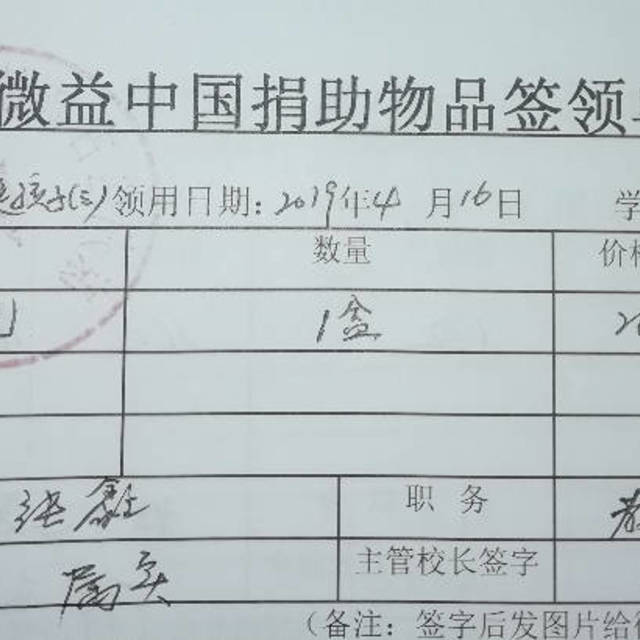 微益中国捐助物品签领
孩子(三) 领用日期：2019年4月16日 学
数量 价格
1盒 2
张鑫 职 务 教
属实 主管校长签字
（备注：签字后发图片给